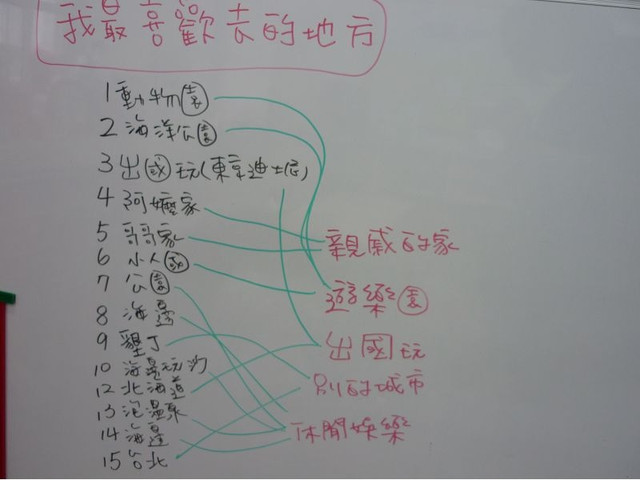 我最喜歡去的地方
1動物園
2海洋公園
3出國玩(東京迪士尼)
4阿嬤家
5哥哥家
6小人國
7公園
8海邊
9墾丁
10海邊玩沙
12北海道
13泡溫泉
14海邊
15台北
親戚的家
遊樂園
出國玩
別的城市
休閒娛樂